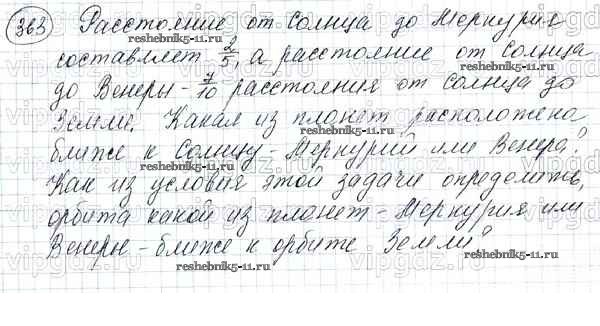 363 Расстояние от Солнца до Меркурия
составляет 2/5, а расстояние от Солнца
до Венеры - 7/10 расстояния от Солнца до
Земли. Какая из планет расположена
ближе к Солнцу - Меркурий или Венера?
Как из условия этой задачи определить,
орбита какой из планет - Меркурия или
Венеры - ближе к орбите Земли?
reshebnik5-11.ru
reshebnik5-11.ru
reshebnik5-11.ru
reshebnik5-11.ru
vipgdz.ru